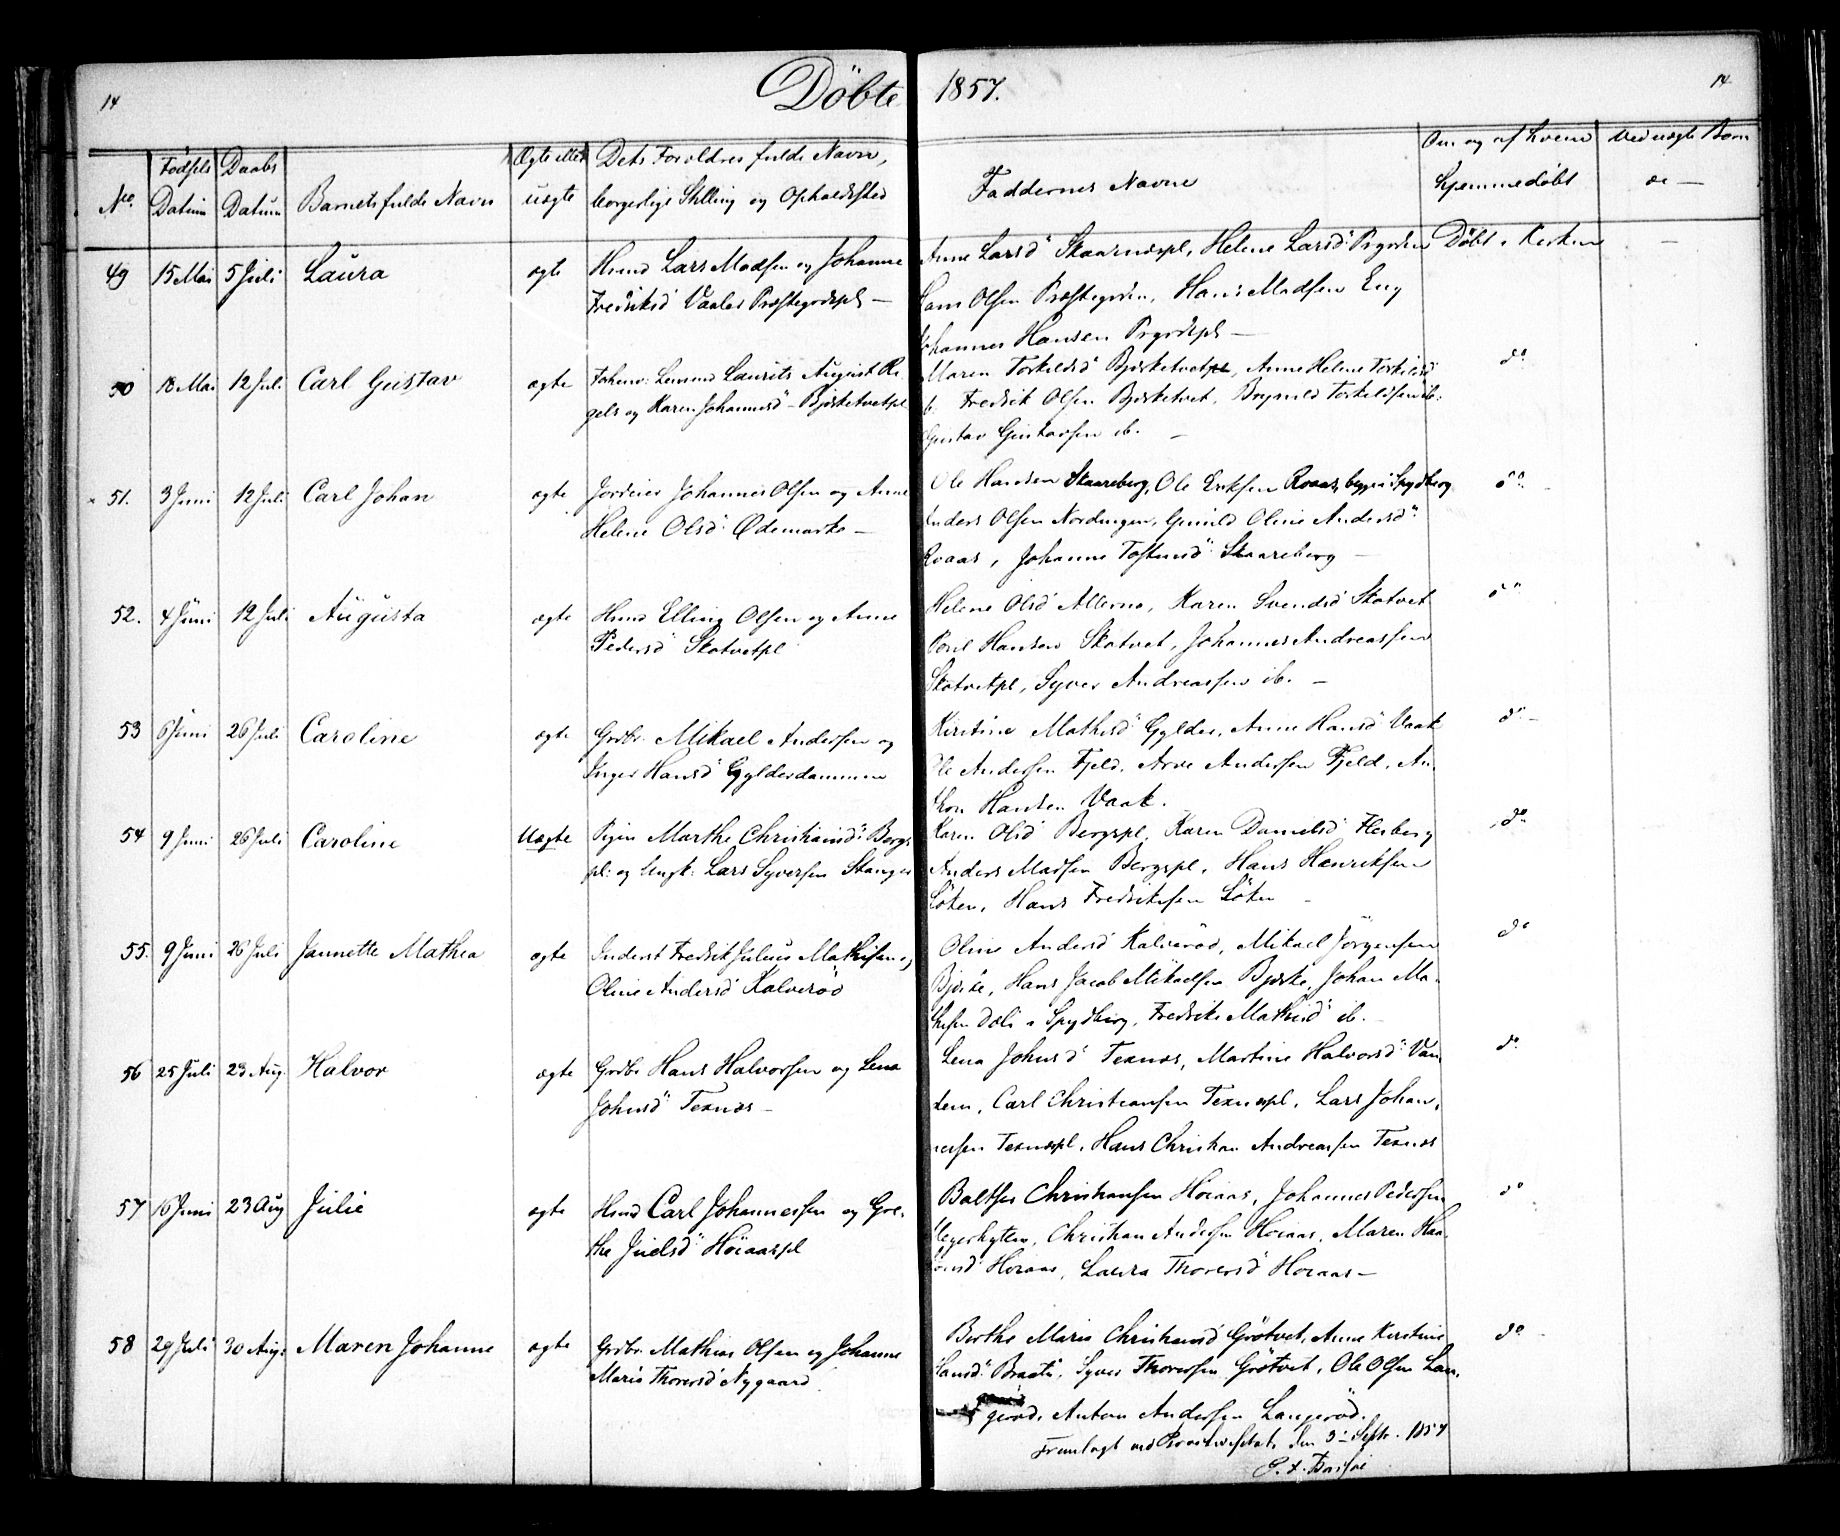 14
Döbte 1857.
14
No. Fødsels Datum Daabs Datum Barnets fulde Navn Ægte eller uægte Dets Forældres fulde Navn, borgerlige Stilling og Opholdssted Faddernes Navne Om og af hvem hjemmedøbt Ved uægte Børn
49 15 Mai 5 Juli Laura ægte Huusmd Lars Madsen og Johanne
Fredriksd Vaaler Præstegrdspl —
Anne Larsd Skaarnæspl, Helene Larsd Prgrden
Olsen Præstegrden, Hans Madsen Eng
Johannes Hansen Prgrdspl —
Døbt i Kirken —
50 18 Mai 12 Juli Carl Gustav ægte Laurits August
og Karen Johannesd Bjørketvetpl
Maren Torkildsd Bjørketvetpl, Anne Helene Torkildsd
ib. Fredrik Olsen Bjørketvet, Brynild Torkildsen ib.
Gustav Gustavsen ib. —
do
51. 3 Juni 12 Juli Carl Johan ægte Jordeier Johannes Olsen og Anne
Helene Olsd Ødemarke —
Ole Hansen Skaareberg, Ole Eriksen Roaas, i Spydberg
Anders Olsen Nordengen, Gunild Oline Andersd
Roaas, Johanne Skaareberg —
do
52. 4 Juni 12 Juli Augusta ægte Hmd Elling Olsen og Anne
Pedersd Skotvetpl
Helene Olsd Allerno, Karen Svendsd Skotvet
Poul Hansen Skotvet, Johannes Andreassen
Skotvetpl, Syver Andreassen ib. —
do
53 6 Juni 26 Juli Caroline ægte Grdbr. Mikael Andersen og
Inger Hansd Gylderdammen
Kirstine Mathisd Gylder, Anne Hansd Vaak
Ole Andersen Fjeld, Arve Andersen Fjeld, An-
thon Hansen Vaak.
do
54 9 Juni 26 Juli Caroline Uægte Pigen Marthe Christiansd Bergs
pl. og Ungk. Lars Syversen Stanger
Karen Olsd Bergspl, Karen Danielsd Herberg
Anders Madsen Bergspl, Hans Henriksen
Löken, Hans Fredriksen Löken —
do
55. 9 Juni 26 Juli Jannette Mathea ægte Inderst Fredrik Julius Mathisen og
Oline Andersd Kalverød
Oline Andersd Kalverød, Mikael Jörgensen
Bjørke, Hans Jacob Mikaelsen Bjørke, Johan Ma-
thisen Dæli i Spydberg, Fredrike Mathisd ib. —
do
56 25 Juli 23 Aug. Halvor ægte Grdbr Hans Halvorsen og Lena
Johnsd Texnæs —
Lena Johnsd Texnæs, Martine Halvorsd Van
dem, Carl Christiansen Texnæspl, Lars Johan-
nessen Texnæspl, Hans Christian Andreassen Texnæs
do
57 16 Juni 23 Aug Julie ægte Hmd Carl Johannessen og Gre-
the Juelsd Höiaaspl
Baltser Christiansen Höiaas, Johannes Pedersen
Christian Andersen Höiaas, Maren Haa-
Höiaas, Laura Thoresd Höiaas —
do
58 29 Juli 30 Aug. Maren Johanne ægte Grdbr. Mathias Olsen og Johanne
Marie Thoresd Nygaard
Berthe Marie Christiansd Grötvet, Anne Kirstine
Hansd Braate, Syver Thoresen Grötvet, Ole Olsen Lan-
geröd, Anton Andersen Langeröd.
do
Fremlagt ved Provstevisitats den 3 Septr. 1857